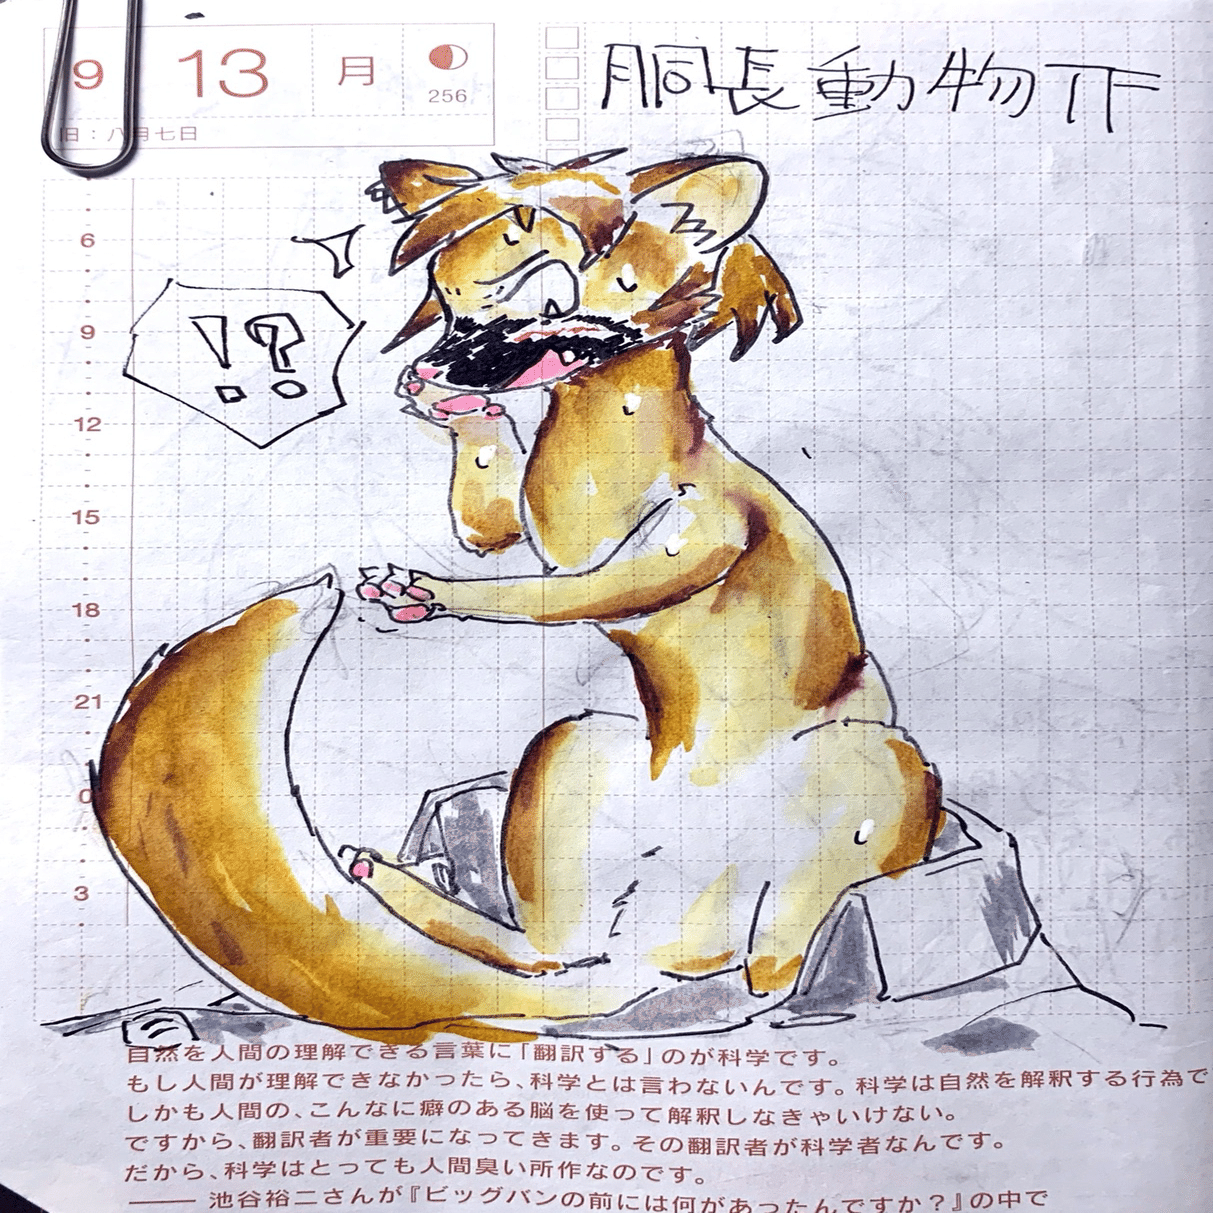 9 13 月 256
旧：八月七日
胴長動物下
!?
6
9
12
15
18
21
0
3
自然を人間の理解できる言葉に「翻訳する」のが科学です。
もし人間が理解できなかったら、科学とは言わないんです。科学は自然を解釈する行為で
しかも人間の、こんなに癖のある脳を使って解釈しなきゃいけない。
ですから、翻訳者が重要になってきます。その翻訳者が科学者なんです。
だから、科学はとっても人間臭い所作なのです。
—— 池谷裕二さんが『ビッグバンの前には何があったんですか？』の中で